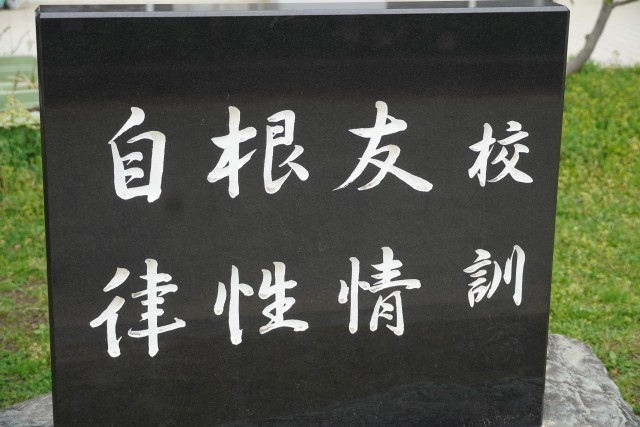 校訓
友情
根性
自律